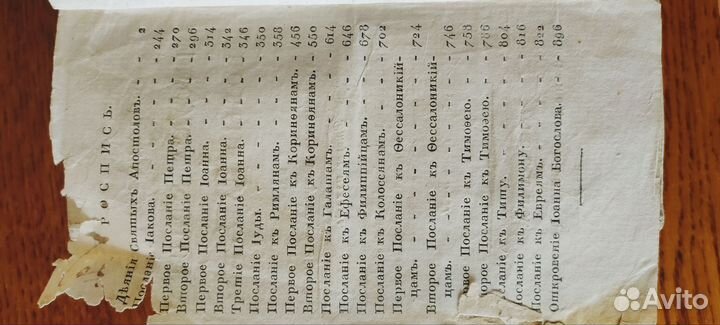 РОСПИСЬ.
Дѣянія Святыхъ Апостоловъ. - 2
Посланіе Іакова. - - - - 244
Первое Посланіе Петра. - - - 270
Второе Посланіе Петра. - - - 296
Первое Посланіе Іоанна. - - - 314
Второе Посланіе Іоанна. - - - 342
Третіе Посланіе Іоанна. - - - 346
Посланіе Іуды. - - - - - 350
Посланіе къ Римлянамъ. - - - 358
Первое Посланіе къ Коринѳянамъ. - 456
Второе Посланіе къ Коринѳянамъ. - 550
Посланіе къ Галатамъ. - - - 614
Посланіе къ Ефесеямъ. - - - 646
Посланіе къ Филиппійцамъ. - - - 678
Посланіе къ Колоссянамъ. - - - 702
Первое Посланіе къ Ѳессалоникій-
цамъ. - - - - - - 724
Второе Посланіе къ Ѳессалоникій-
цамъ. - - - - - - 746
рвое Посланіе къ Тимоѳею. - - 758
орое Посланіе къ Тимоѳею. - - 786
сланіе къ Титу. - - - - 804
Посланіе къ Филимону. - - - 816
Посланіе къ Евреямъ. - - - 822
Откровеніе Іоанна Богослова. - - 896
Avito